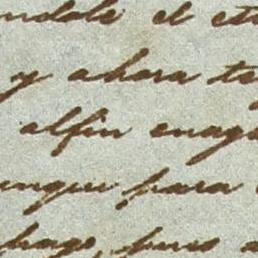 ndole el
y ahora
alfin enag
unque para
hago, pues